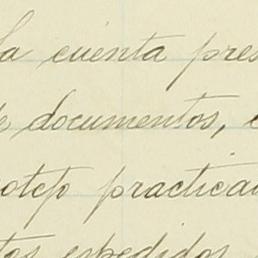 la cuenta pres
documentos,
practica
tos espedidos